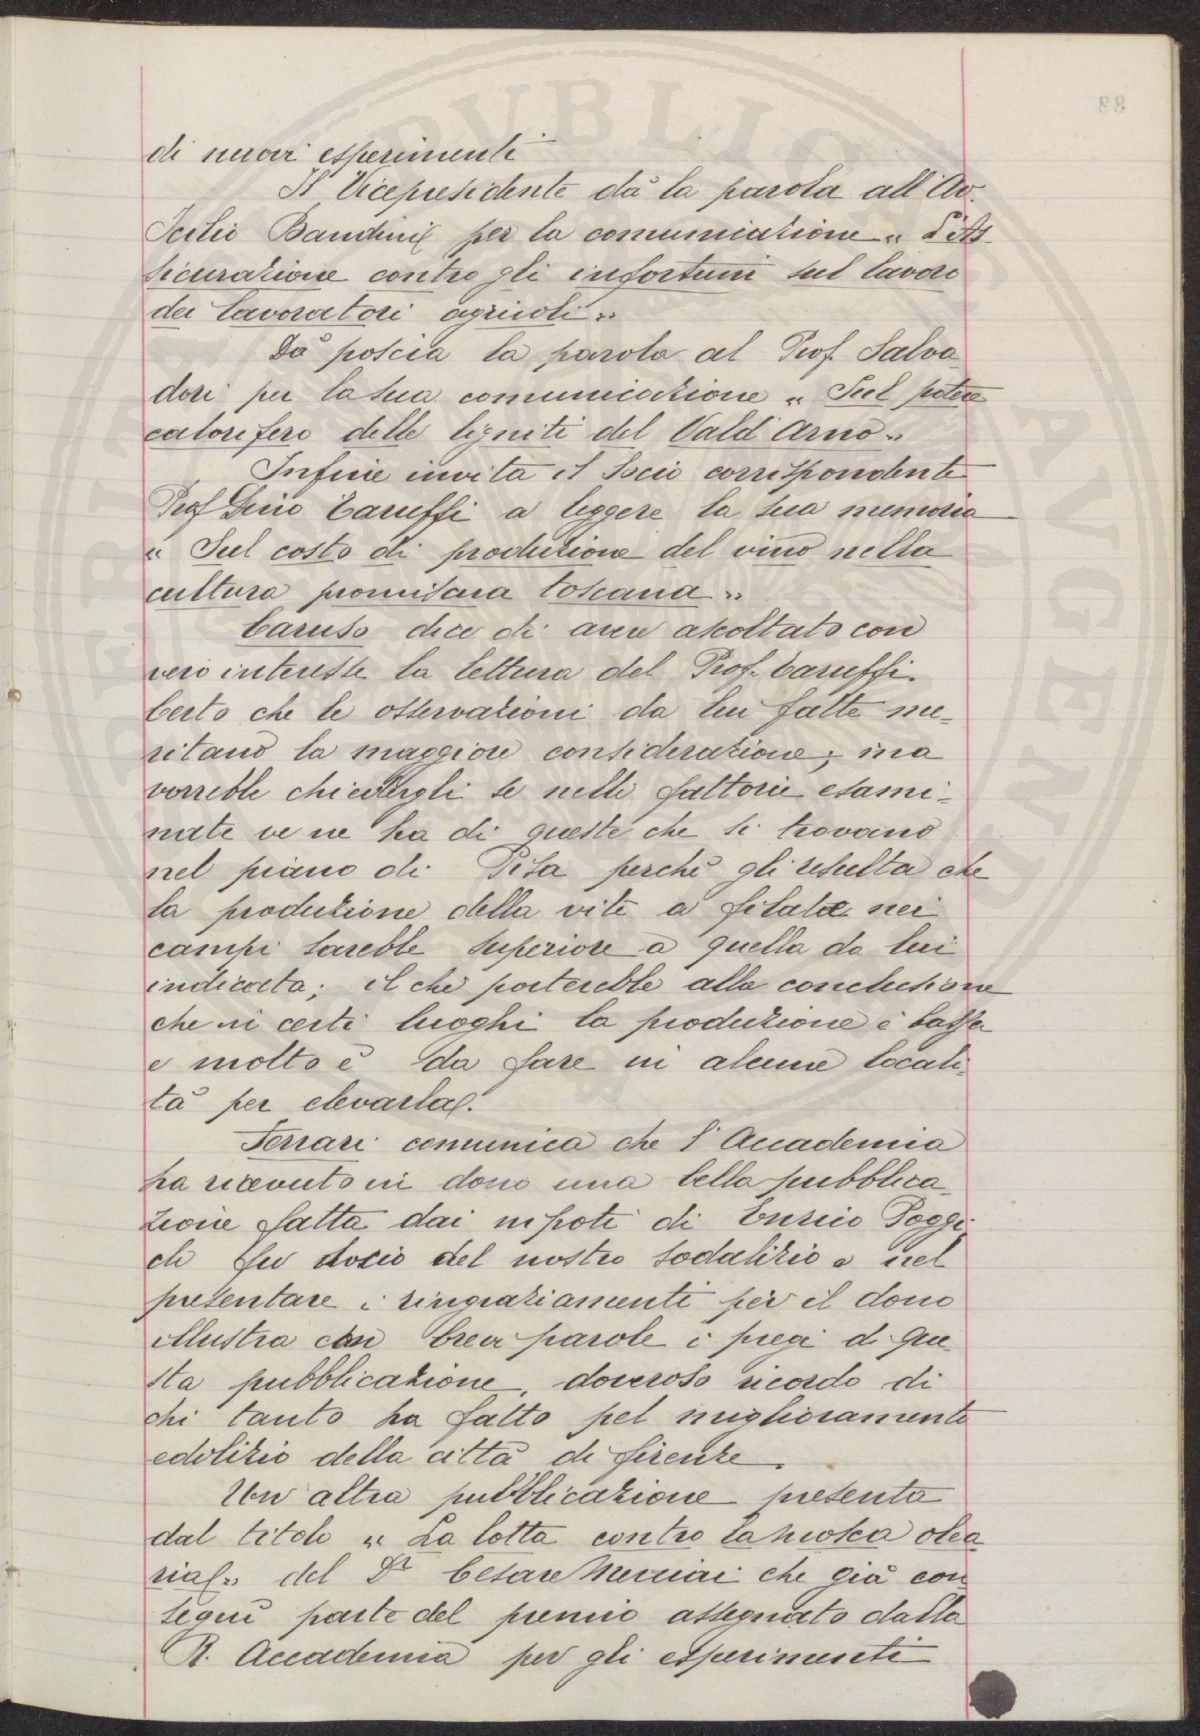 di nuovi esperimenti
Il Vicepresidente dà la parola all'Av.
Icilio Bandini per la comunicazione « L'As-
sicurazione contro gli infortuni sul lavoro
dei lavoratori agricoli »
Dà poscia la parola al Prof. Salva
dori per la sua comunicazione « Sul potere
calorifero delle ligniti del Vald'Arno »
Infine invita il Socio corrispondente
Prof Gino Taruffi a leggere la sua memoria
« Sul costo di produzione del vino nella
cultura promiscua toscana »
Caruso dice di aver ascoltato con
vero interesse la lettura del Prof. Taruffi.
Certo che le osservazioni da lui fatte me-
ritano la maggiore considerazione; ma
vorrebbe chiedergli se nelle fattorie esami-
nate ve ne ha di queste che si trovano
nel piano di Pisa perchè gli resulta che
la produzione della vite a filate nei
campi sarebbe superiore a quella da lui
indicata; il che porterebbe alla conclusione
che in certi luoghi la produzione è bassa
e molto è da fare in alcune locali-
tà per elevarla.
Ferrari comunica che l'Accademia
ha ricevuto in dono una bella pubblica-
zione fatta dai nipoti di Enrico Poggi
che fu socio del nostro sodalizio e nel
presentare i ringraziamenti per il dono
illustra con brevi parole i pregi di que
sta pubblicazione, doveroso ricordo di
chi tanto ha fatto pel miglioramento
edilizio della città di Firenze.
Un altra pubblicazione presenta
dal titolo « La lotta contro la mosca olea
ria » del Dr Cesare Merciai che già con
seguì parte del premio assegnato dalla
R. Accademia per gli esperimenti
88